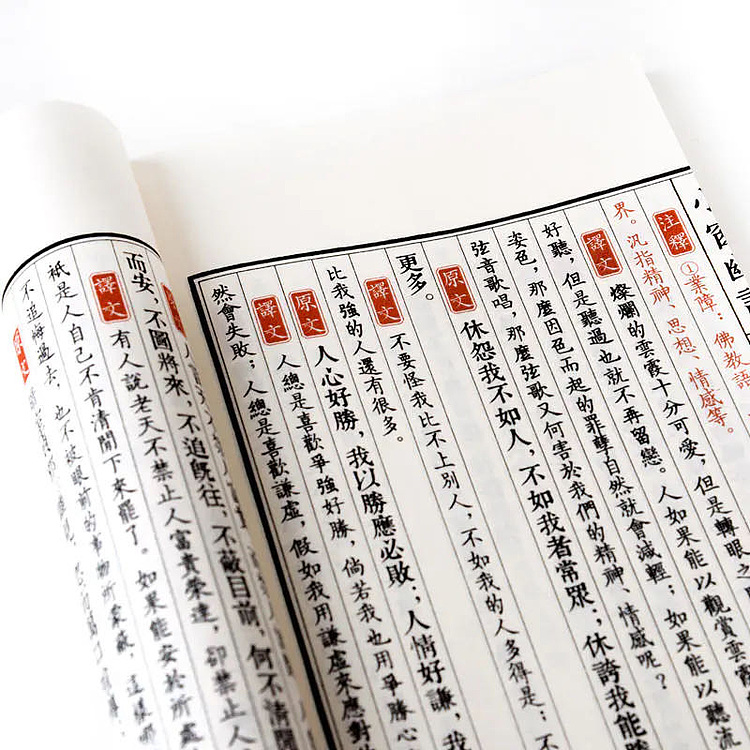 窗幽
注釋 ①業障：佛教語
界。汎指精神、思想、情感等。
譯文 燦爛的雲霞十分可愛，但是轉眼之
好聽，但是聽過也就不再留戀。人如果能以觀賞雲霞
姿色，那麼因色而起的罪孽自然就會減輕；如果能以聽流
弦音歌唱，那麼弦歌又何害於我們的精神、情感呢？
原文 休怨我不如人，不如我者常眾；休誇我能
更多。
譯文 不要怪我比不上別人，不如我的人多得是；不
比我強的人還有很多。
原文 人心好勝，我以勝應必敗；人情好謙，我
譯文 人總是喜歡爭強好勝，倘若我也用爭勝心
然會失敗；人總是喜歡謙虛，假如我用謙虛來應對
而安，不圖將來，不追既往，不蔽目前，何不清閒
譯文 有人說老天不禁止人富貴榮達，卻禁止人
衹是人自己不肯清閒下來罷了。如果能安於所處
不追悔過去，也不被眼前的事物所蒙蔽，這樣